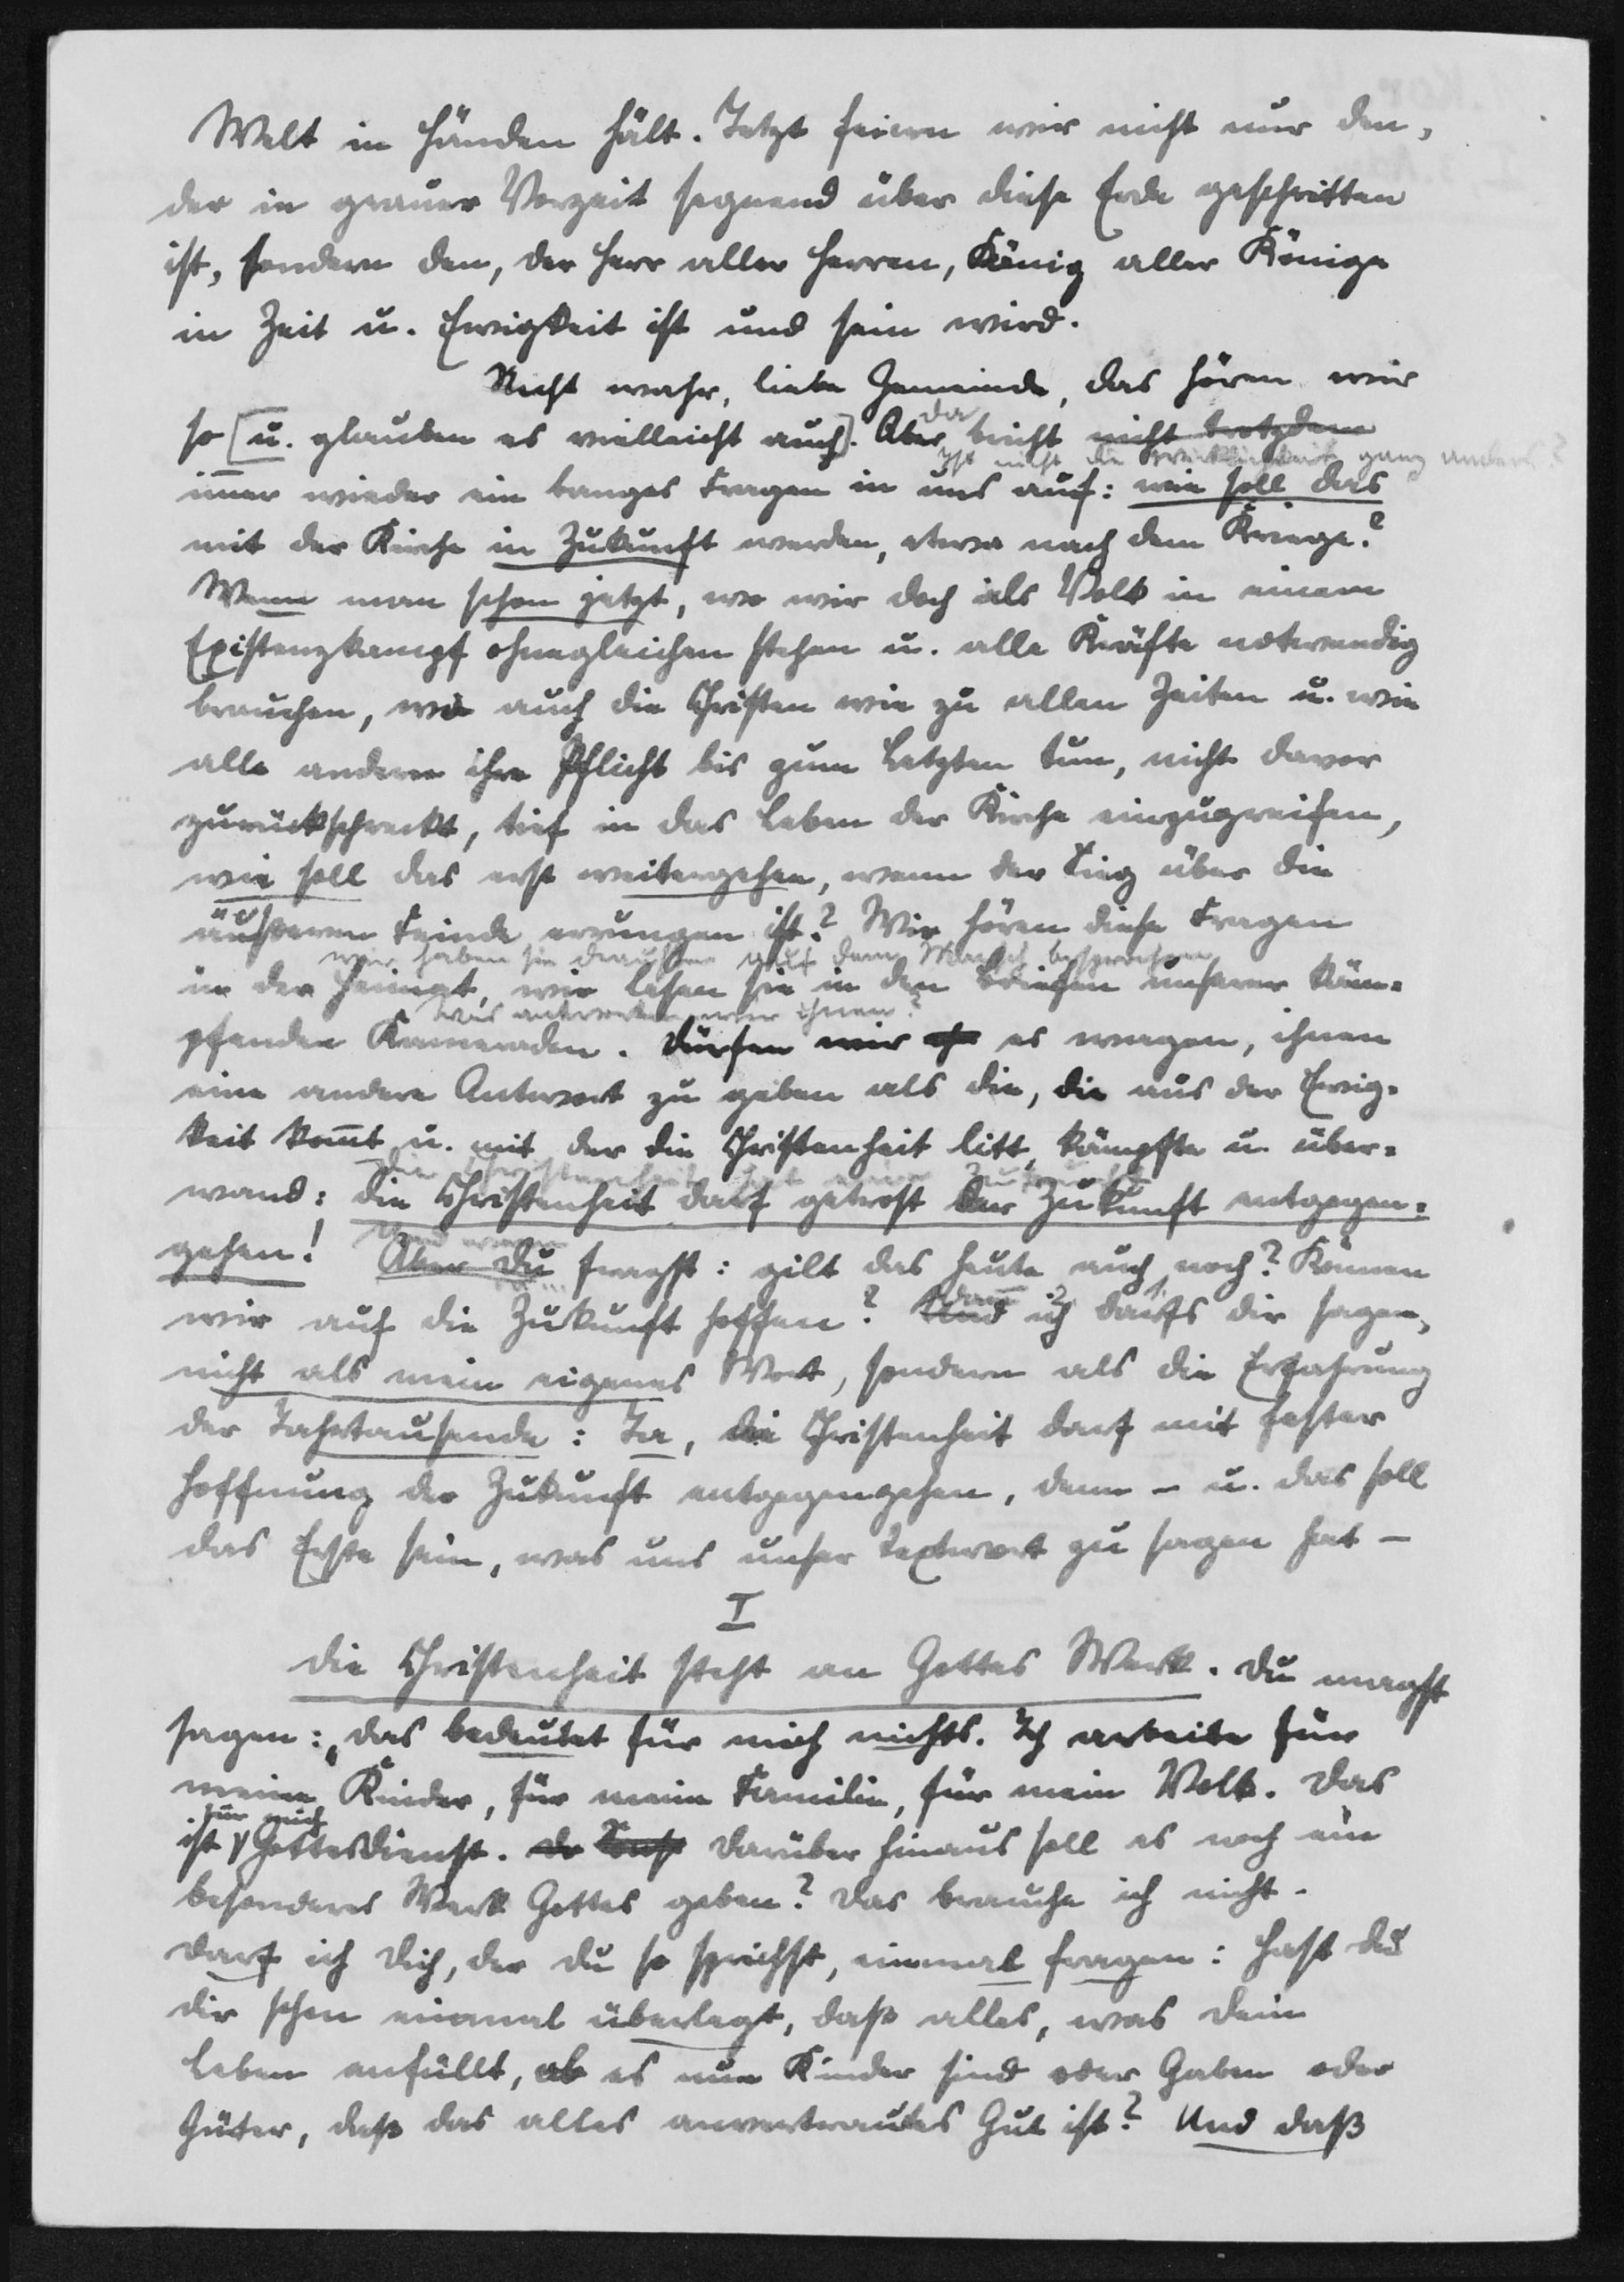 Welt in Händen hält. Jetzt feiern wir nicht nur den,
der in grauer Vorzeit segnend über diese Erde geschritten
ist, sondern den, der Herr aller Herren, König aller Könige
in Zeit u. Ewigkeit ist und sein wird.
Nicht wahr, liebe Gemeinde, das hören wir
da
so [u. glauben es vielleicht auch]. Aber bricht nicht trotzdem
Ist nicht die Wirklichkeit ganz anders?
im̄er wieder ein banges Fragen in uns auf: wie soll das
mit der Kirche in Zukunft werden, etwa nach dem Kriege?
Wenn man schon jetzt, wo wir doch als Volk in einem
Existenzkampf ohnegleichen stehen u. alle Kräfte notwendig
brauchen, wo auch die Christen wie zu allen Zeiten u. wie
alle andern ihre Pflicht bis zum Letzten tun, nicht davor
zurückschreckt, tief in das Leben der Kirche einzugreifen,
wie soll das erst weitergehen, wenn der Sieg über die
äußeren Feinde errungen ist? Wir hören diese Fragen
wir haben sie draußen auf dem Marsch besprochen
in der Heimat, wir lesen sie in den Briefen unserer käm-
was antworten wir ihnen?
pfenden Kameraden. Dürfen wir es wagen, ihnen
eine andere Antwort zu geben als die, die aus der Ewig-
keit kom̄t u. mit der die Christenheit litt, kämpfte u. über-
Die Christenheit hat eine Zukunft
wand: die Christenheit darf getrost der Zukunft entgegen-
gehen! Aber du fragst: gilt das heute auch noch? Können
wir auf die Zukunft hoffen? Und ich darfs dir sagen,
nicht als mein eigenes Wort, sondern als die Erfahrung
der Jahrtausende: Ja, die Christenheit darf mit fester
Hoffnung der Zukunft entgegengehen, denn - u. das soll
das Erste sein, was uns unser Textwort zu sagen hat -
I
Die Christenheit steht an Gottes Werk. Du magst
sagen: „das bedeutet für mich nichts. Ich arbeite für
meine Kinder, für meine Familie, für mein Volk. Das
für mich
ist Gottesdienst. Darüber hinaus soll es noch ein
besonderes Werk Gottes geben? Das brauche ich nicht.
Darf ich dich, der du so sprichst, einmal fragen: Hast du
dir schon einmal überlegt, daß alles, was dein
Leben anfüllt, ob es nun Kinder sind oder Gaben oder
Güter, daß das alles anvertrautes Gut ist? Und daß